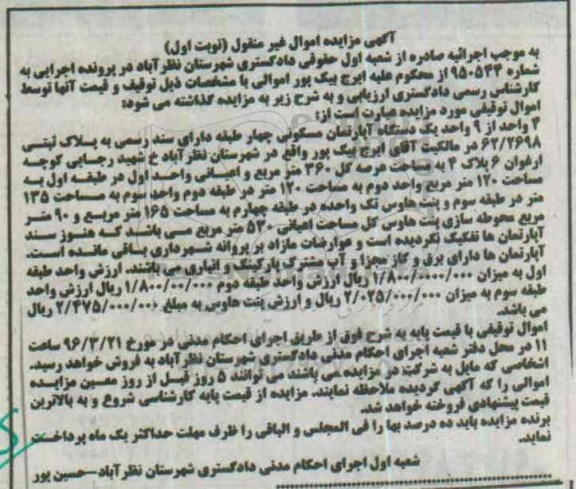 آگهی مزایده اموال غیر منقول (نوبت اول)
به موجب اجرائیه صادره از شعبه اول حقوقی دادگستری شهرستان نظرآباد در پرونده اجرایی به
شماره ۹۵۰۵۴۴ از محکوم علیه ایرج پیک پور اموالی با مشخصات ذیل توقیف و قیمت آنها توسط
کارشناس رسمی دادگستری ارزیابی و به شرح زیر به مزایده گذاشته می شود:
اموال توقیفی مورد مزایده عبارت است از:
۴ واحد از ۹ واحد یک دستگاه آپارتمان مسکونی چهار طبقه دارای سند رسمی به پلاک ثبتی
۶۲/۲۶۹۸ در مالکیت آقای ایرج پیک پور واقع در شهرستان نظرآباد خ شهید رجایی کوچه
ارغوان ۶ پلاک ۴ به مساحت عرصه کل ۳۶۰ متر مربع و اعیانی واحد اول در طبقه اول به
مساحت ۱۲۰ متر مربع واحد دوم به مساحت ۱۲۰ متر در طبقه دوم واحد سوم به مساحت ۱۳۵
متر در طبقه سوم و پنت هاوس تک واحده در طبقه چهارم به مساحت ۱۶۵ متر مربع و ۹۰ متر
مربع محوطه سازی پنت هاوس کل مساحت اعیانی ۵۳۰ متر مربع می باشد که هنوز سند
آپارتمان ها تفکیک نگردیده است و عوارضات مازاد بر پروانه شهرداری باقی مانده است.
آپارتمان ها دارای برق و گاز مجزا و آب مشترک پارکینگ و انباری می باشند. ارزش واحد طبقه
اول به میزان ۱/۸۰۰/۰۰۰/۰۰۰ ریال ارزش واحد طبقه دوم ۱/۸۰۰/۰۰/۰۰۰ ریال ارزش واحد
طبقه سوم به میزان ۲/۰۲۵/۰۰۰/۰۰۰ ریال و ارزش پنت هاوس به مبلغ ۲/۴۷۵/۰۰۰/۰۰۰ ریال
می باشد.
اموال توقیفی با قیمت پایه به شرح فوق از طریق اجرای احکام مدنی در مورخ ۹۶/۳/۲۱ ساعت
۱۱ در محل دفتر شعبه اجرای احکام مدنی دادگستری شهرستان نظرآباد به فروش خواهد رسید.
اشخاصی که مایل به شرکت در مزایده می باشند می توانند ۵ روز قبل از روز معین مزایده
اموالی را که آگهی گردیده ملاحظه نمایند. مزایده از قیمت پایه کارشناسی شروع و به بالاترین
قیمت پیشنهادی فروخته خواهد شد.
برنده مزایده باید ده درصد بها را فی المجلس و الباقی را ظرف مهلت حداکثر یک ماه پرداخت
نماید.
شعبه اول اجرای احکام مدنی دادگستری شهرستان نظرآباد–حسین پور